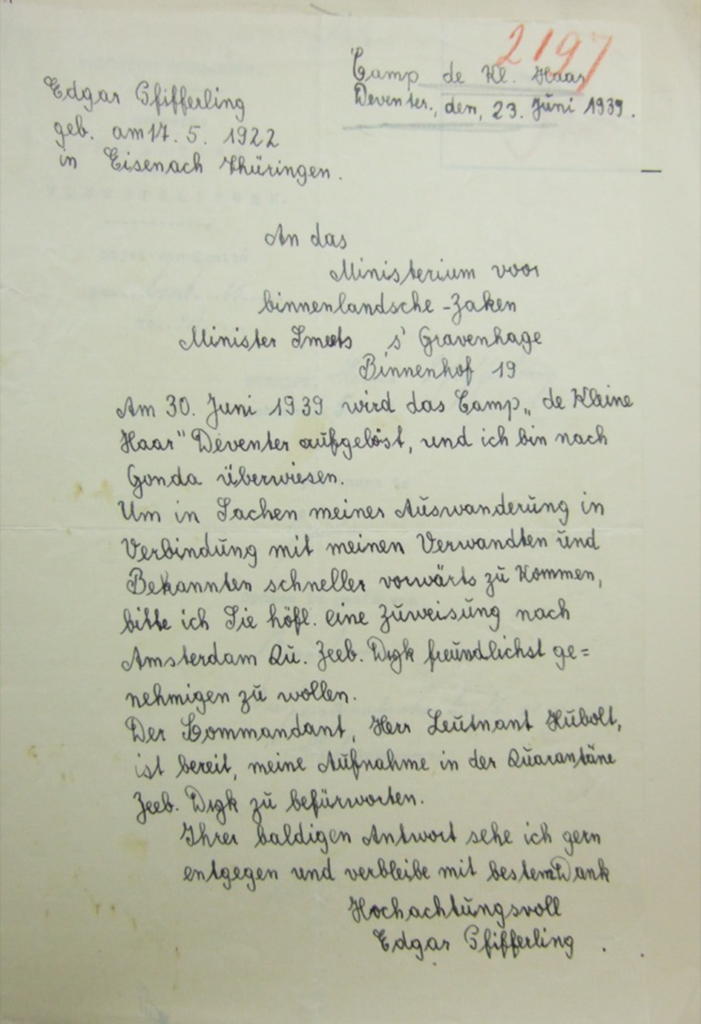 2197
Camp de Kl. Haar
Deventer., den, 23. Juni 1939.
Edgar Pfifferling
geb. am 17. 5. 1922
in Eisenach Thüringen.
An das
Ministerium voor
binnenlandsche-Zaken
Minister Smeets s' Gravenhage
Binnenhof 19
Am 30. Juni 1939 wird das Camp „ de Kleine
Haar" Deventer aufgelöst, und ich bin nach
Gonda überwiesen.
Um in Sachen meiner Auswanderung in
Verbindung mit meinen Verwandten und
Bekannten schneller vorwärts zu kommen,
bitte ich Sie höfl. eine Zuweisung nach
Amsterdam Qu. Zeeb. Dyk freundlichst ge=
nehmigen zu wollen.
Der Commandant, Herr Leutnant Hubolt,
ist bereit, meine Aufnahme in der Quarantäne
Zeeb. Dyk zu befürworten.
Ihrer baldigen Antwort sehe ich gern
entgegen und verbleibe mit bestem Dank
Hochachtungsvoll
Edgar Pfifferling .